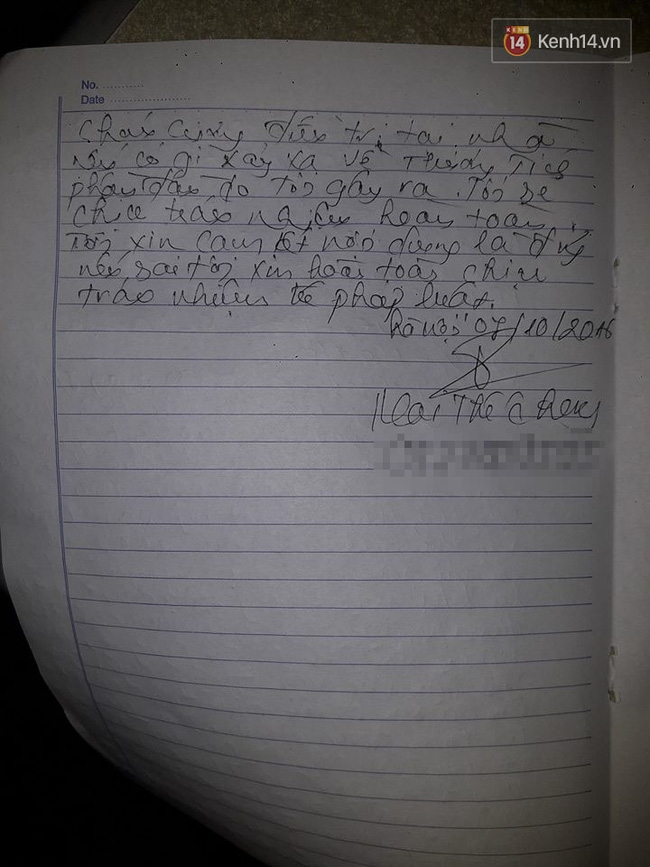 KENH
14
Kenh14.vn
No. ..........
Date ................
cháu Cường điều trị tại nhà
nếu có gì xảy ra về Thương Tích
phần đầu do tôi gây ra. Tôi sẽ
chịu trách nhiệm hoàn toàn.
Tôi xin cam kết nội dung là đúng
nếu sai tôi xin hoàn toàn chịu
trách nhiệm tr pháp luật.
hà nội 07/10/2016
Thế